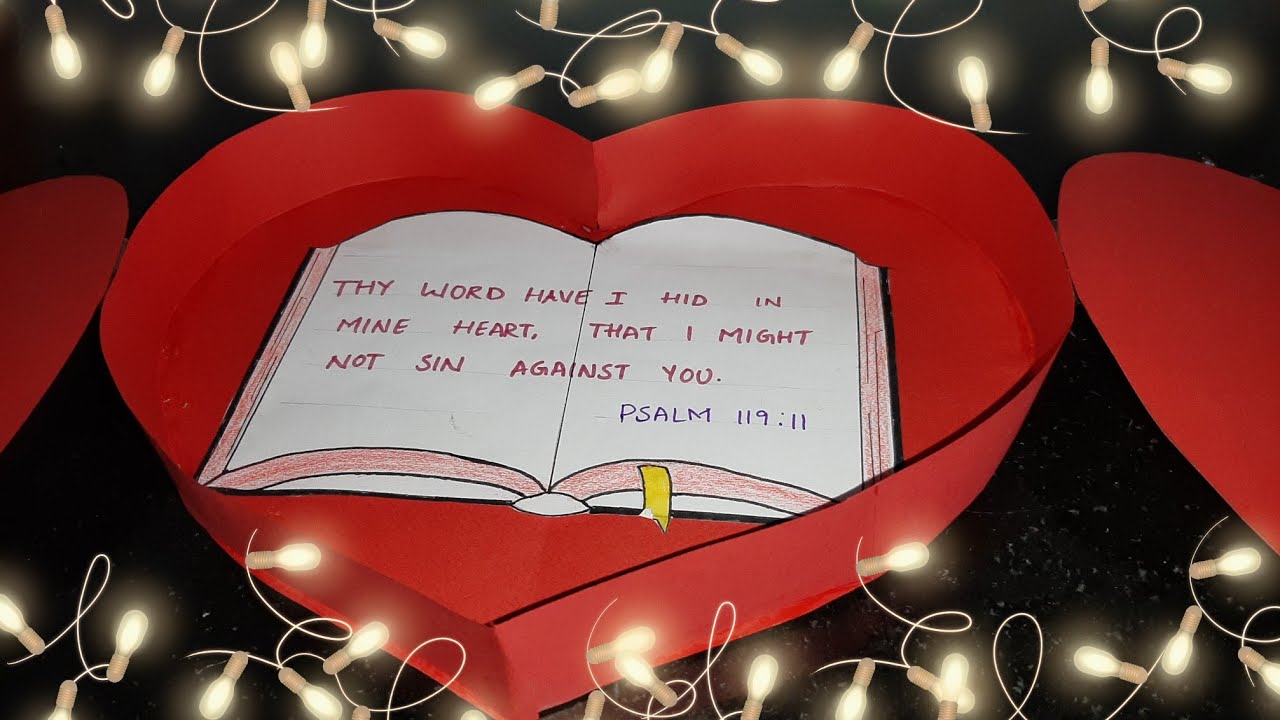 THY WORD HAVE I HID IN
MINE HEART, THAT I MIGHT
NOT SIN AGAINST YOU.
PSALM 119:11